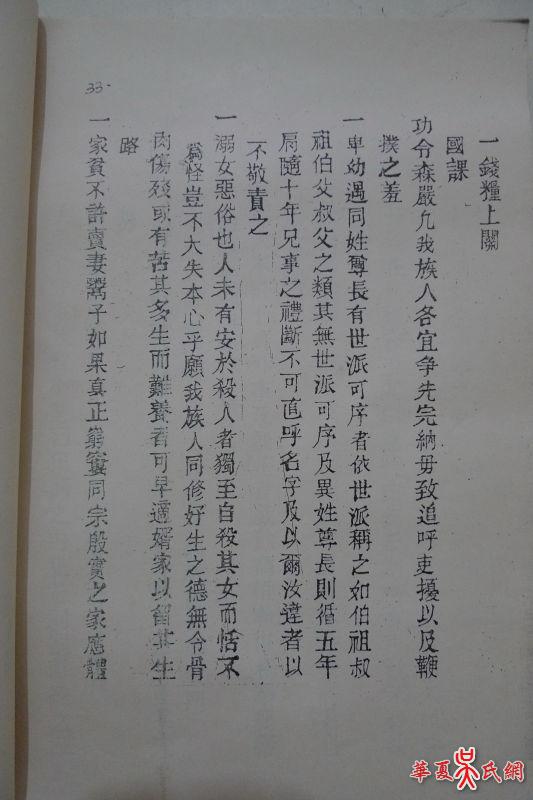 33.
一錢糧上關
國課
功令森嚴凢我族人各宜争先完納毋致追呼吏擾以及鞭
撲之羞
一卑幼遇同姓尊長有世派可序者依世派稱之如伯祖叔
祖伯父叔父之類其無世派可序及異姓尊長則循五年
肩隨十年兄事之禮斷不可直呼名字及以爾汝違者以
不敬責之
一溺女惡俗也人未有安於殺人者獨至自殺其女而恬不
爲怪豈不大失本心乎願我族人同修好生之德無令骨
肉傷殘或有苦其多生而難養者可早適婿家以留其生
路
一家貧不許賣妻鬻子如果真正窮窶同宗殷實之家應體
華夏吴氏網